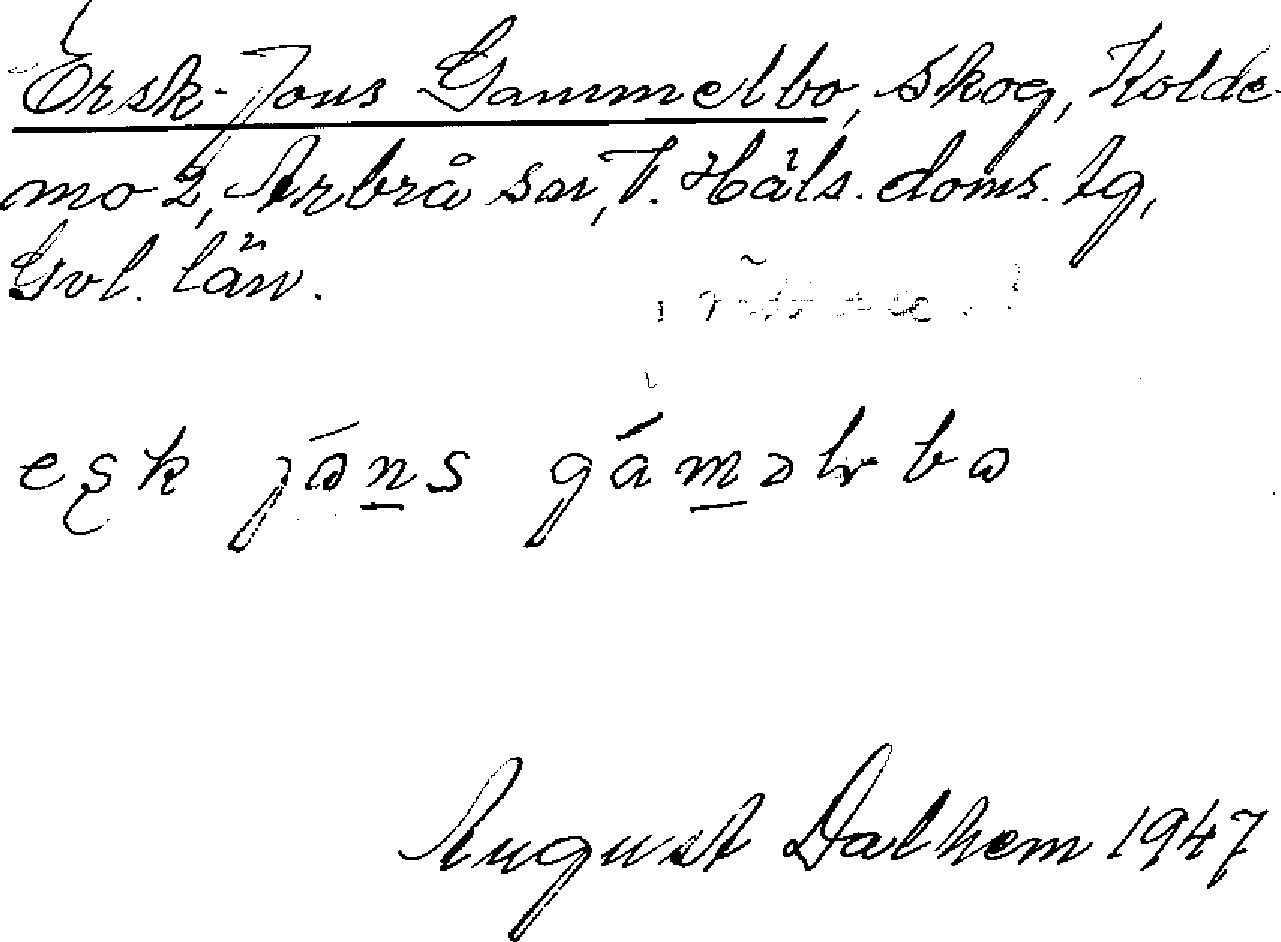 Ersk-Jons Gammelbo, skog, Kolde-
mo 2, Arbrå sn, V. Häls. doms. tg,
Gvl. län.
gáməlv bɷ
August Dalhem 1947